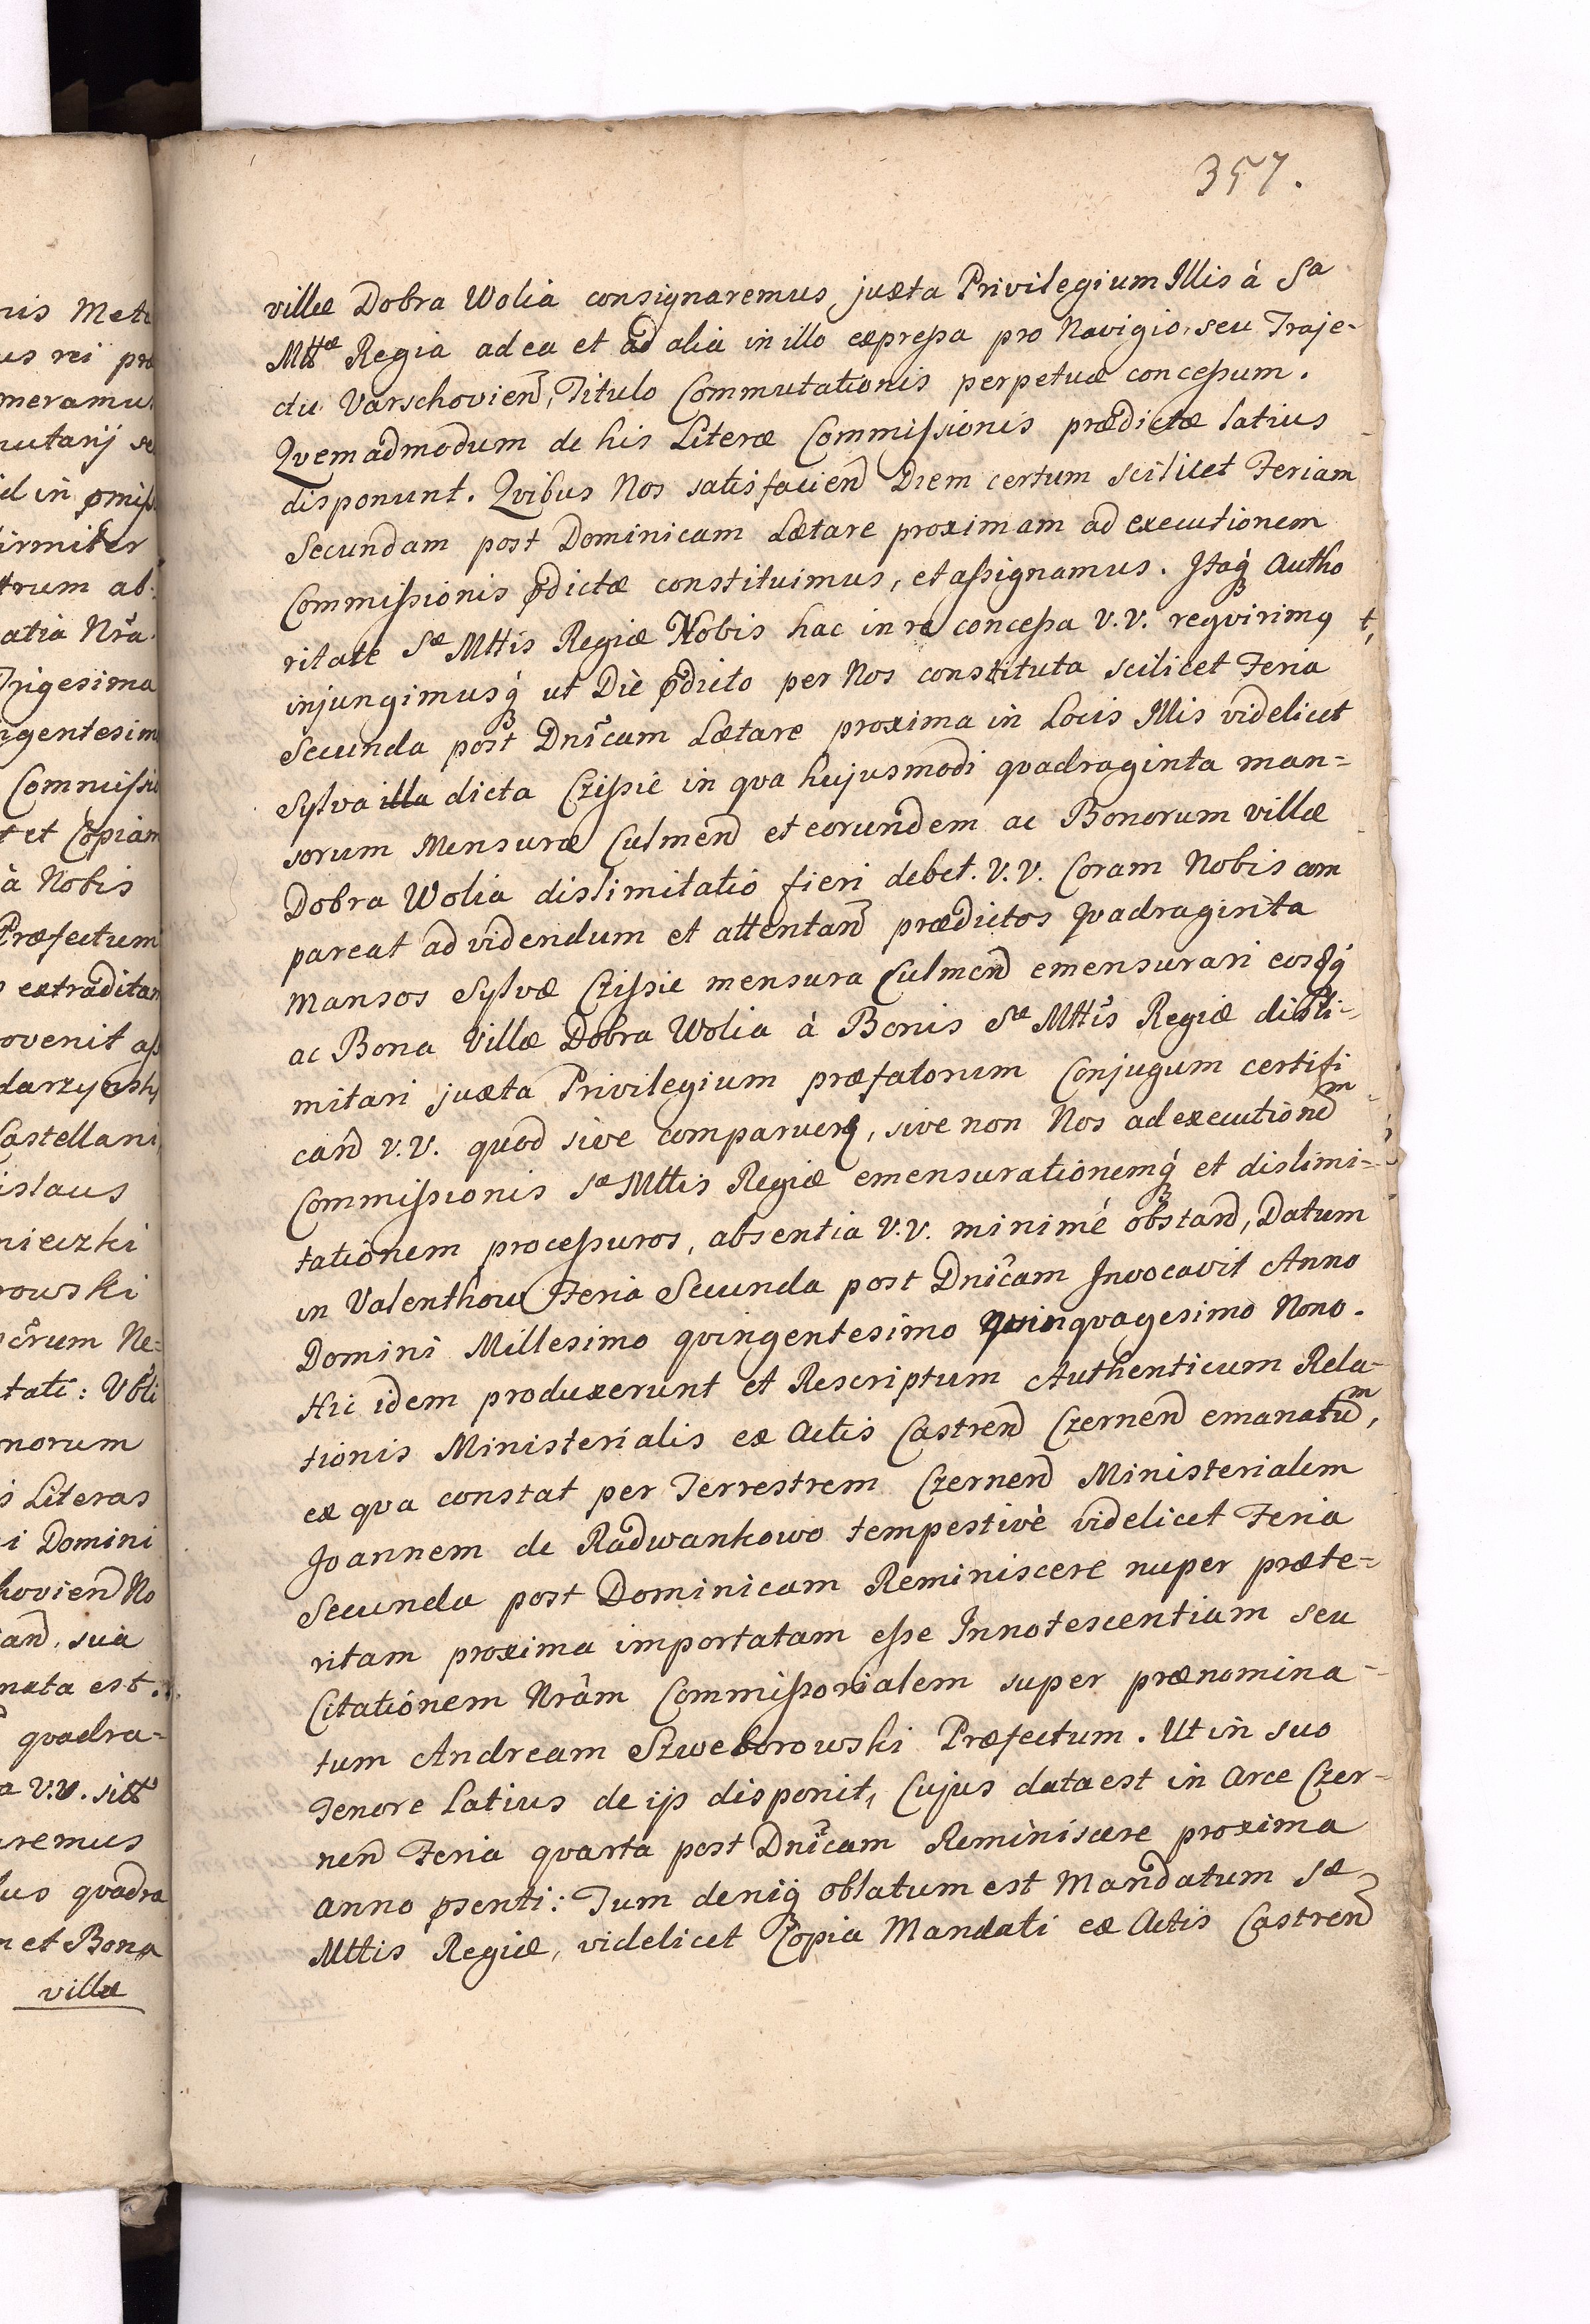 357.
villæ Dobra Wolia consignaremus juxta Privilegium Illis à Sa
Mttæ Regia ad ea et ad alia in illo expressa pro Navigio, seu Traje-
ctu Varschovien, Titulo Commutationis perpetuæ concessum.
Qvemadmodum de his Literæ Commissionis prædictæ latius
disponunt. Qvibus Nos satisfacien Diem certum scilicet Feriam
Secundam post Dominicam Lætare proximam ad executionem
Commissionis pdictæ constituimus, et assignamus. Itaq Autho
ritate Sæ Mttis Regiæ Nobis hac in re concessa V.V. reqvirimq t,
injungimusq ut Die pdicto per Nos constituta scilicet Feria
Secunda post Dnicam Lætare proxima in Locis Illis videlicet
Sylva illa dicta Czissie in qva hujusmodi qvadraginta man=
sorum Mensuræ Culmen et eorundem ac Bonorum villæ
Dobra Wolia dislimitatio fieri debet. V.V. Coram Nobis com
pareat ad videndum et attentan prædictos Qvadraginta
Mansos Sylvæ Czissie mensura Culmen emensurari eosqq
ac Bona Villæ Dobra Wolia à Bonis Sæ Mttis Regiæ disli-
mitari juxta Privilegium præfatorum Conjugum certifi
can V.V. quod sive comparuerq, sive non Nos ad executionem
Commissionis Sæ Mttis Regiæ emensurationemq et dislimi=
tationem processuros, absentia V.V. minimé obstan, Datum
in Valenthow Feria Secunda post Dnicam Invocavit Anno
Domini Millesimo qvingentesimo quinqvagesimo Nono.
Hic idem produxerunt et Rescriptum Authenticum Rela-
tionis Ministerialis ex Actis Castren Czernen emanatum,
ex qva constat per Terrestrem Czernen Ministerialem
Joannem de Radwankowo tempestivè videlicet Feria
Secunda post Dominicam Reminiscere nuper præte=
ritam proxima importatam esse Innotescentiam seu
Citationem Nram Commissorialem super prænomina-
tum Andream Szweborowski Præfectum. Ut in suo
Tenore Latius de ijs disponit, Cujus data est in Arce Czer-
nen Feria qvarta post Dnicam Reminiscere proxima
anno psenti: Tum deniq oblatum est Mandatum Sæ
Mttis Regiæ, videlicet Copia Mandati ex Actis Castren